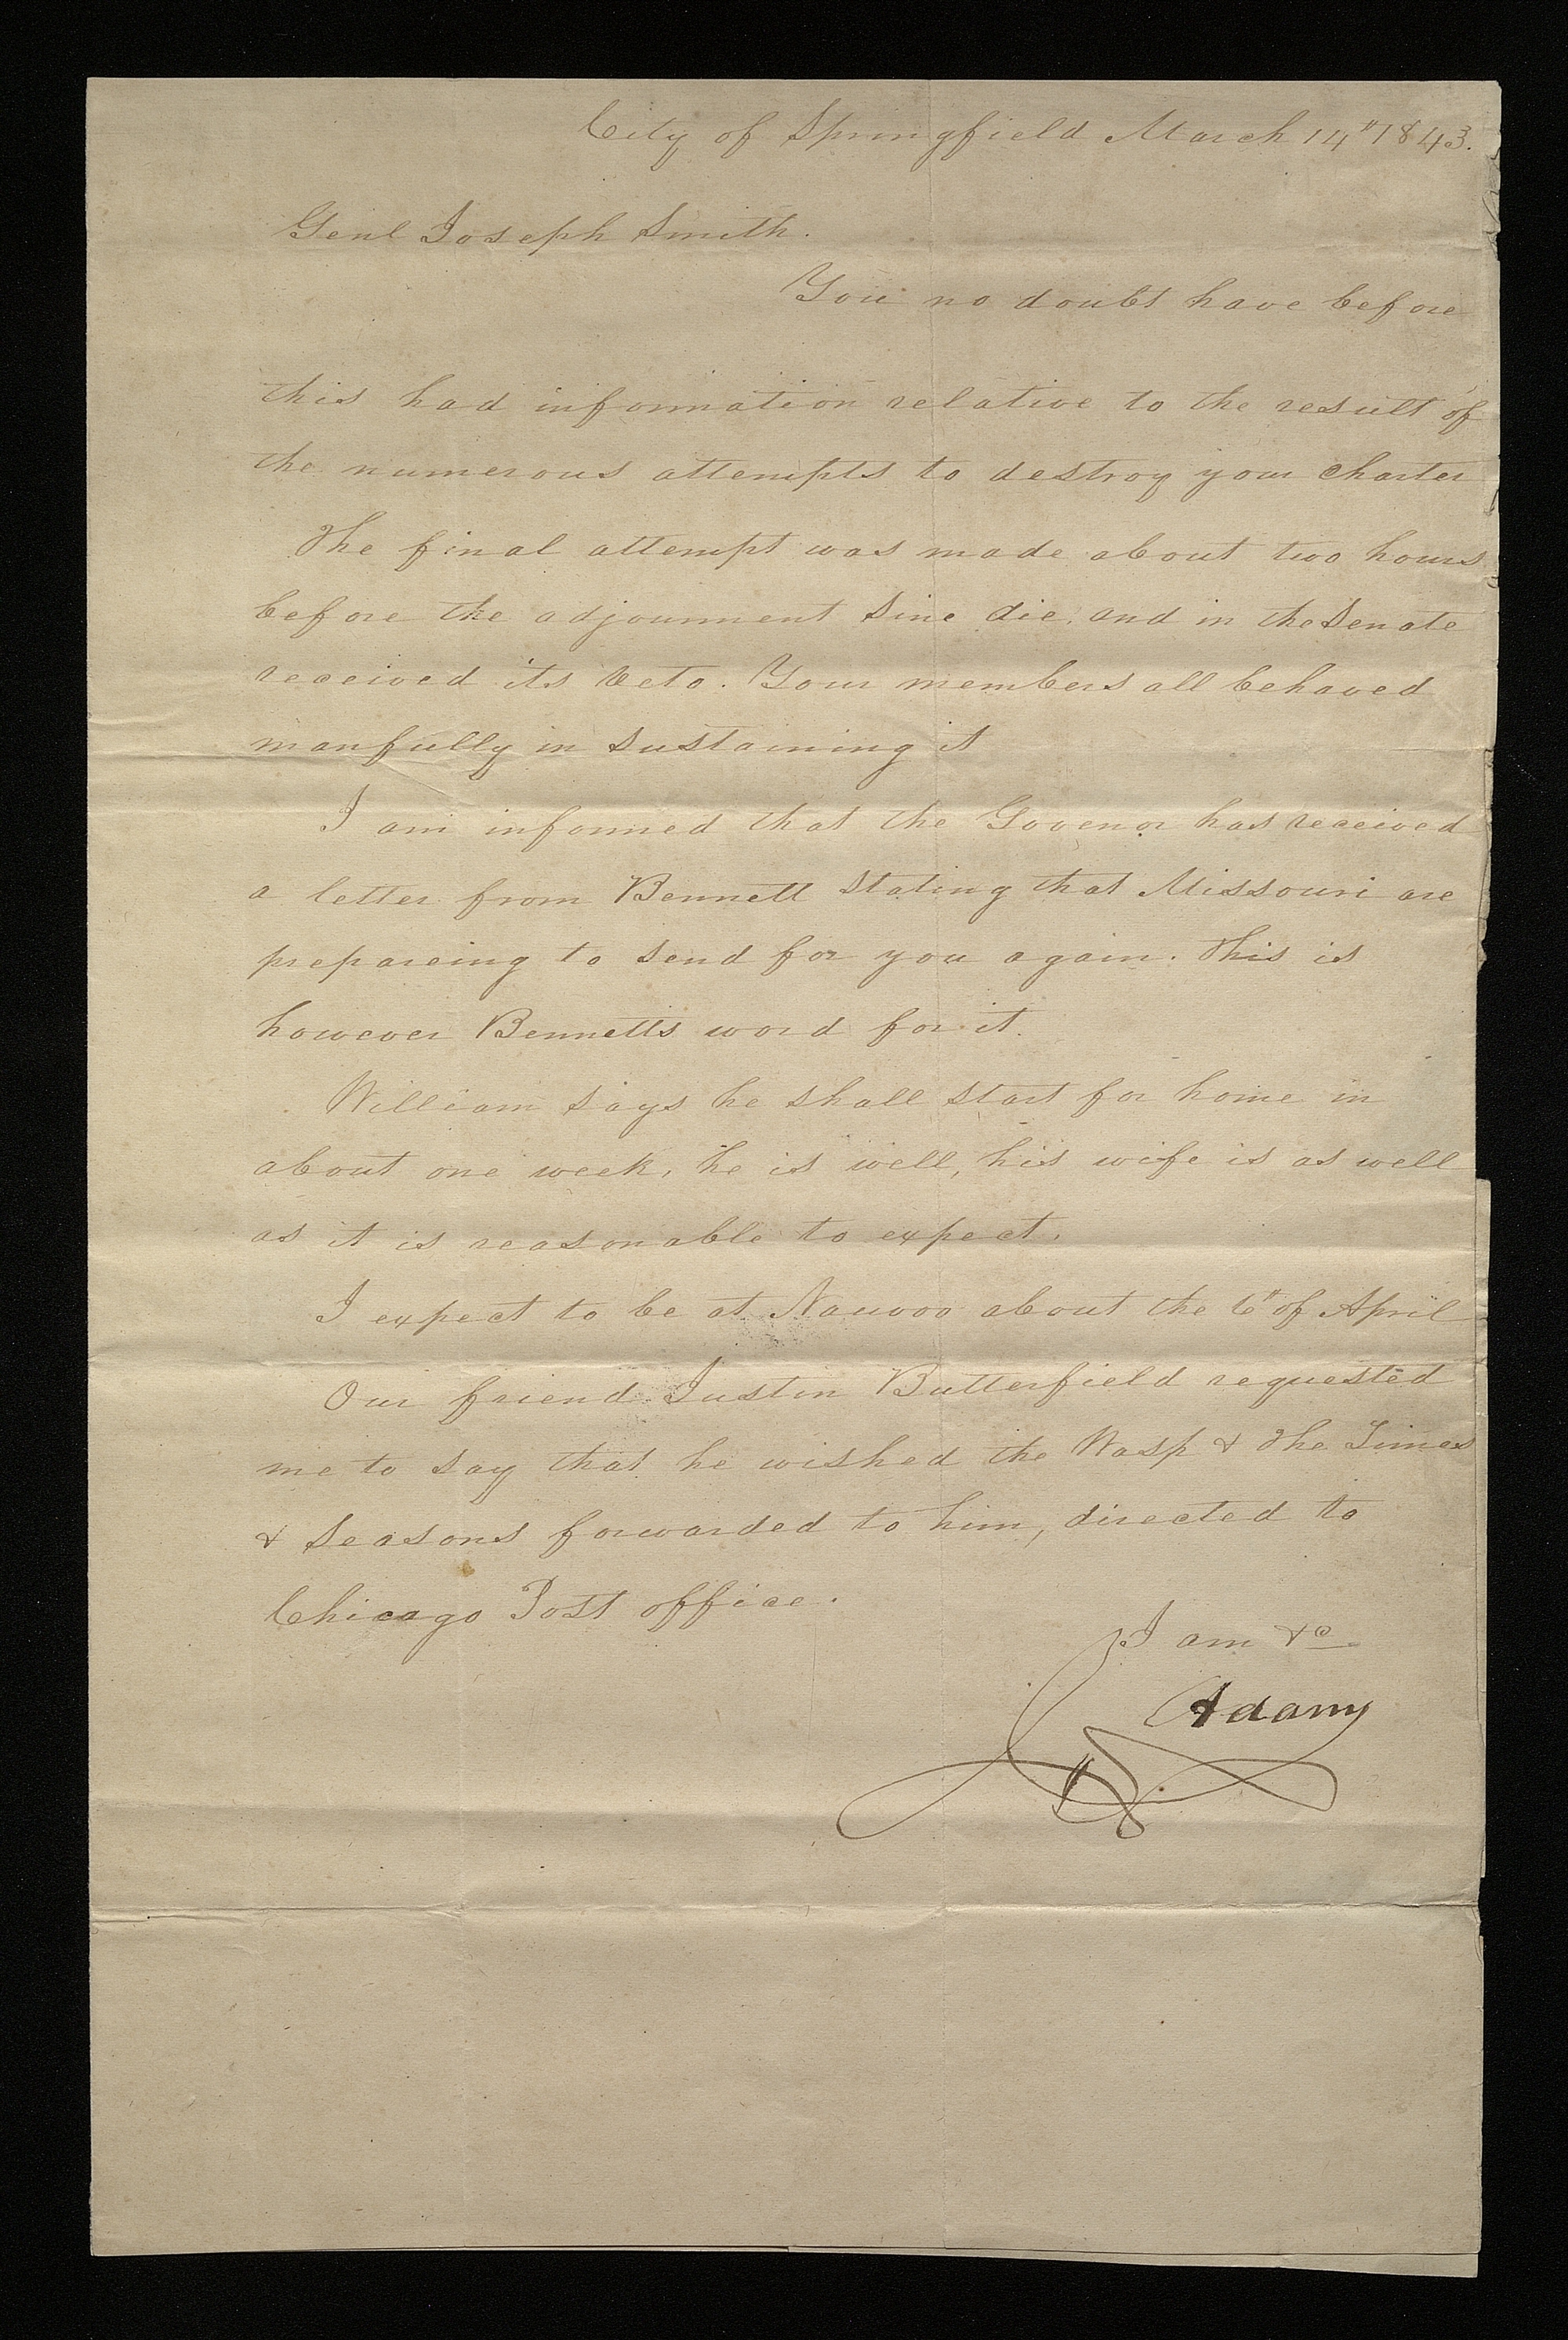 City of Springfield March 14" 1843.
Genl Joseph Smith.
You no doubt have before
this had information relative to the result of
the numerous attempts to destroy your charter
The final attempt was made about two hours
before the adjournment Sine die, and in the Senate
received its veto. Your members all behaved
manfully in sustaining it
I am informed that the Govenor has received
a letter from Bennett stating that Missouri are
prepareing to send for you again. This is
however Bennetts word for it.
William says he shall start for home in
about one week, he is well, his wife is as well
as it is reasonable to expect.
I expect to be at Nauvoo about the 6" of April
Our friend Justin Butterfield requested
me to say that he wished the Wasp & The Times
& Seasons forwarded to him, directed to
Chicago Post office.
I am &c
J Adams